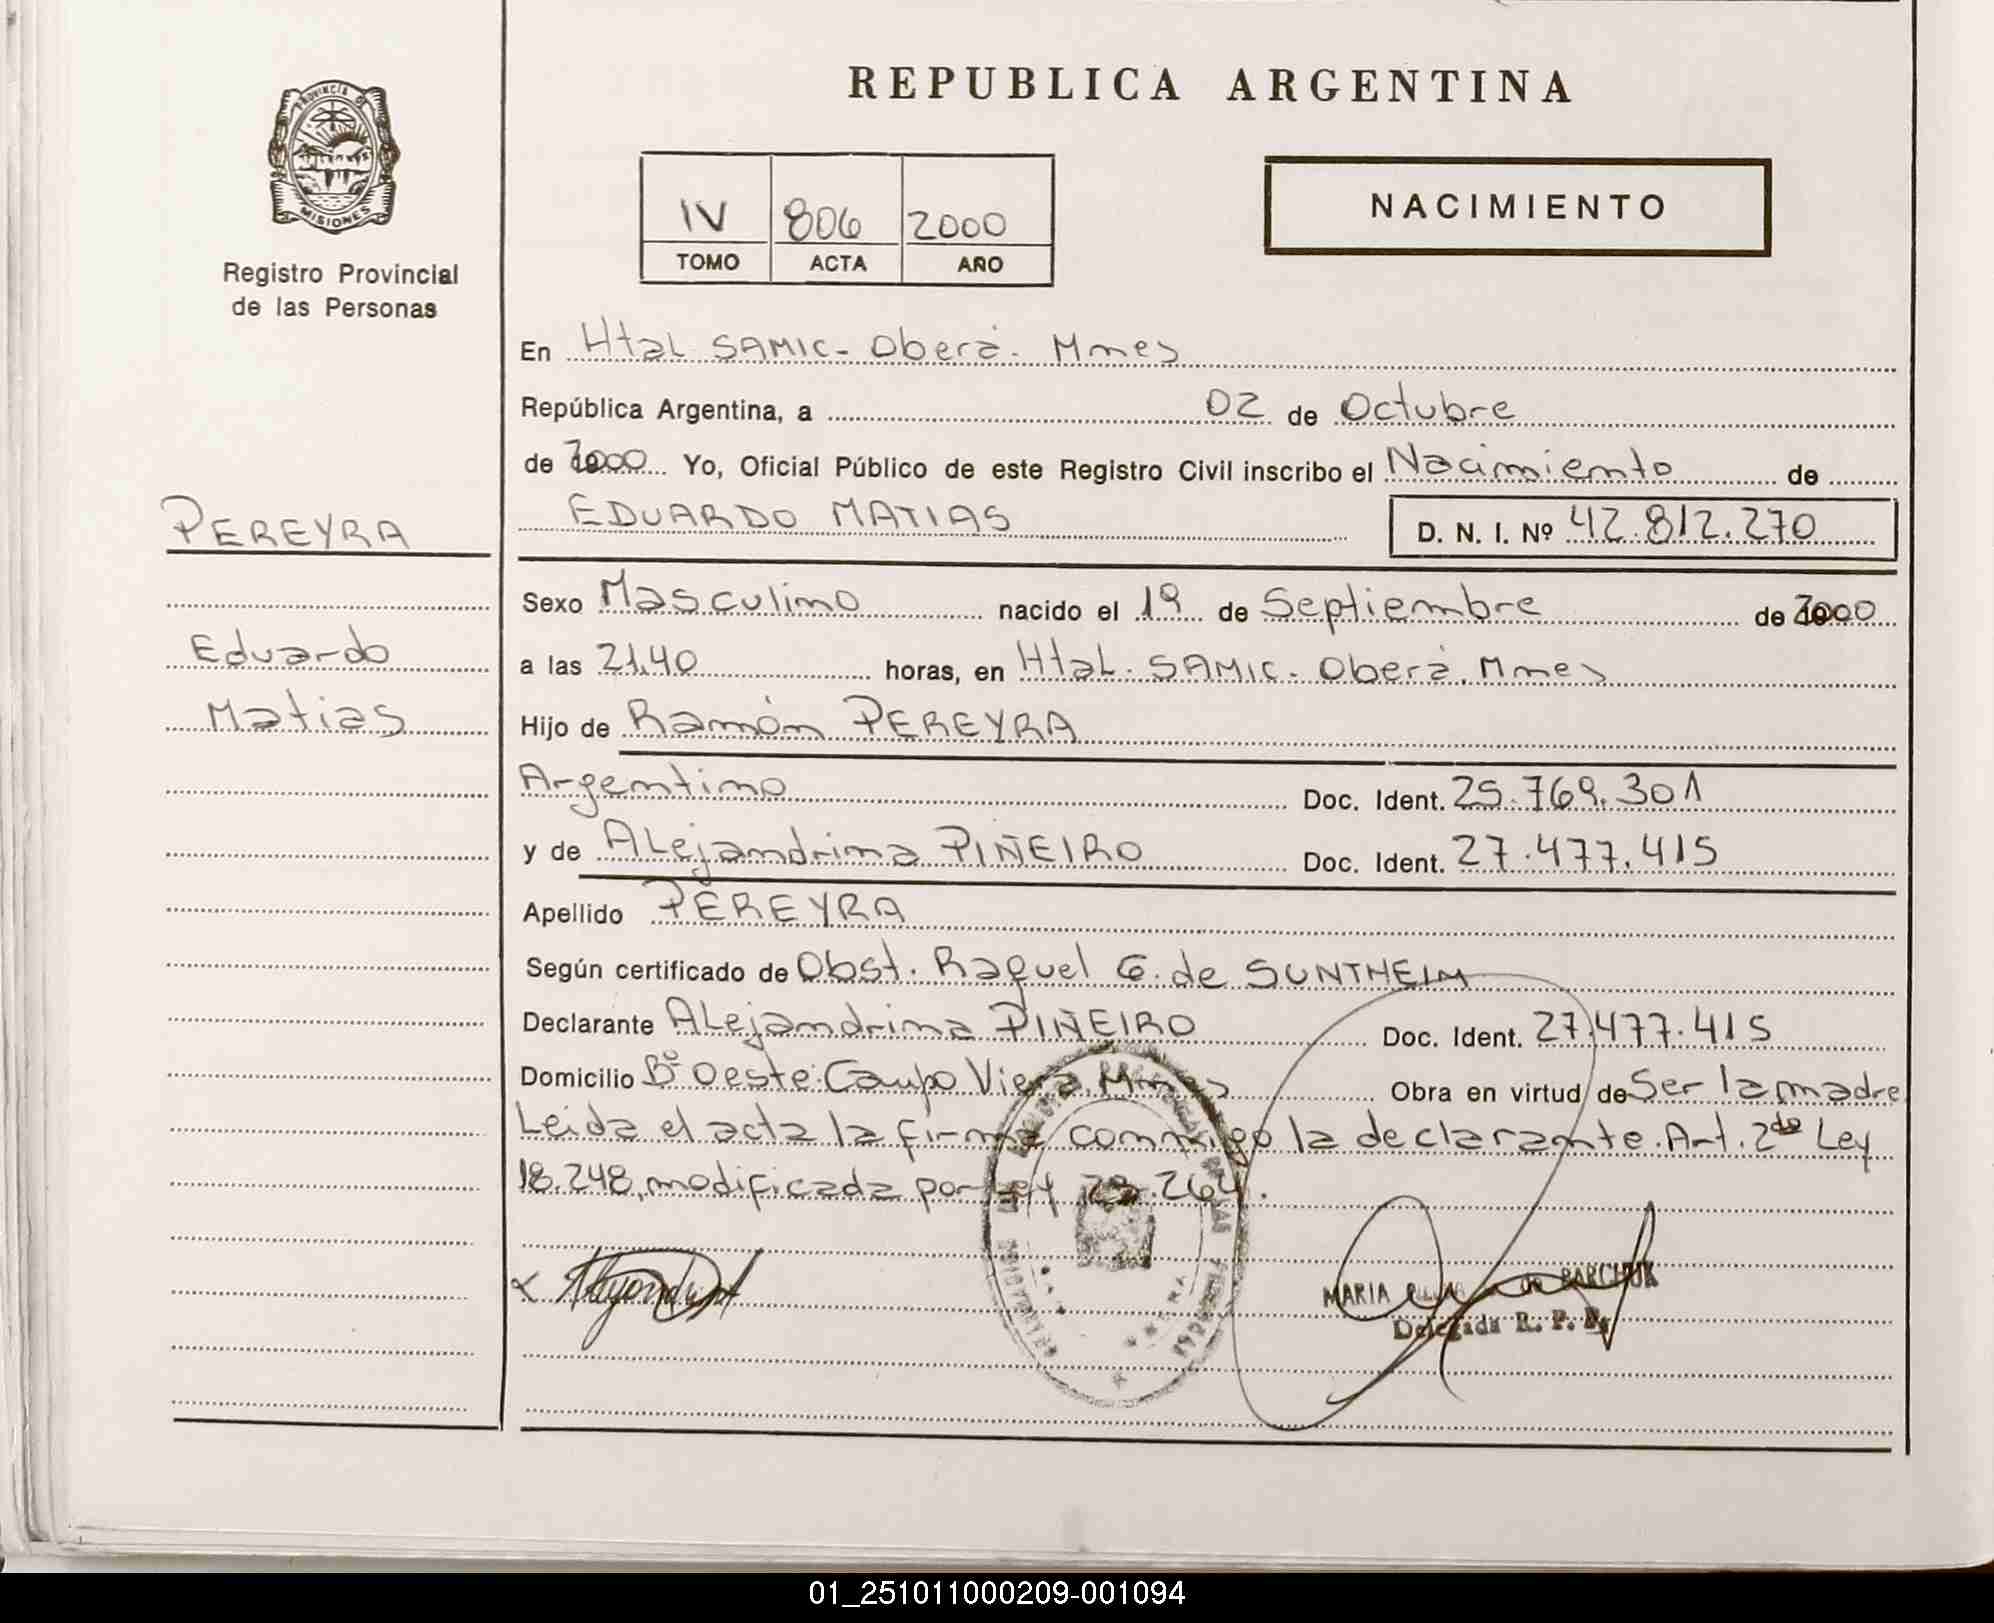 REPUBLICA ARGENTINA
PROVINCIA DE
MISIONES
Registro Provincial
de las Personas
IV 806 2000
TOMO ACTA AÑO
NACIMIENTO
En Htal SAMIC - Oberá. Mnes
República Argentina, a 02 de Octubre
de 2000 Yo, Oficial Público de este Registro Civil inscribo el Nacimiento de
PEREYRA
EDUARDO MATIAS D. N. I. Nº 42.812.270
Sexo Masculino nacido el 19 de Septiembre de 2000
Eduardo
a las 21.40 horas, en Htal. SAMIC. Oberá. Mnes
Matias
Hijo de Ramón PEREYRA
Argentino Doc. Ident. 25.769.301
y de Alejandrina PIÑEIRO Doc. Ident. 27.477.415
Apellido PEREYRA
Según certificado de Obst. Raquel G. de SUNTHEIM
Declarante Alejandrina PIÑEIRO Doc. Ident. 27.477.415
Domicilio Bº Oeste. Campo Viera. Mnes Obra en virtud de Ser la madre
Leida el acta la firma conmigo la declarante. Art. 2do Ley
18.248, modificada por Ley 23.264.
MARIA de BARCHUK
Delegada R. P. P.
01_251011000209-001094